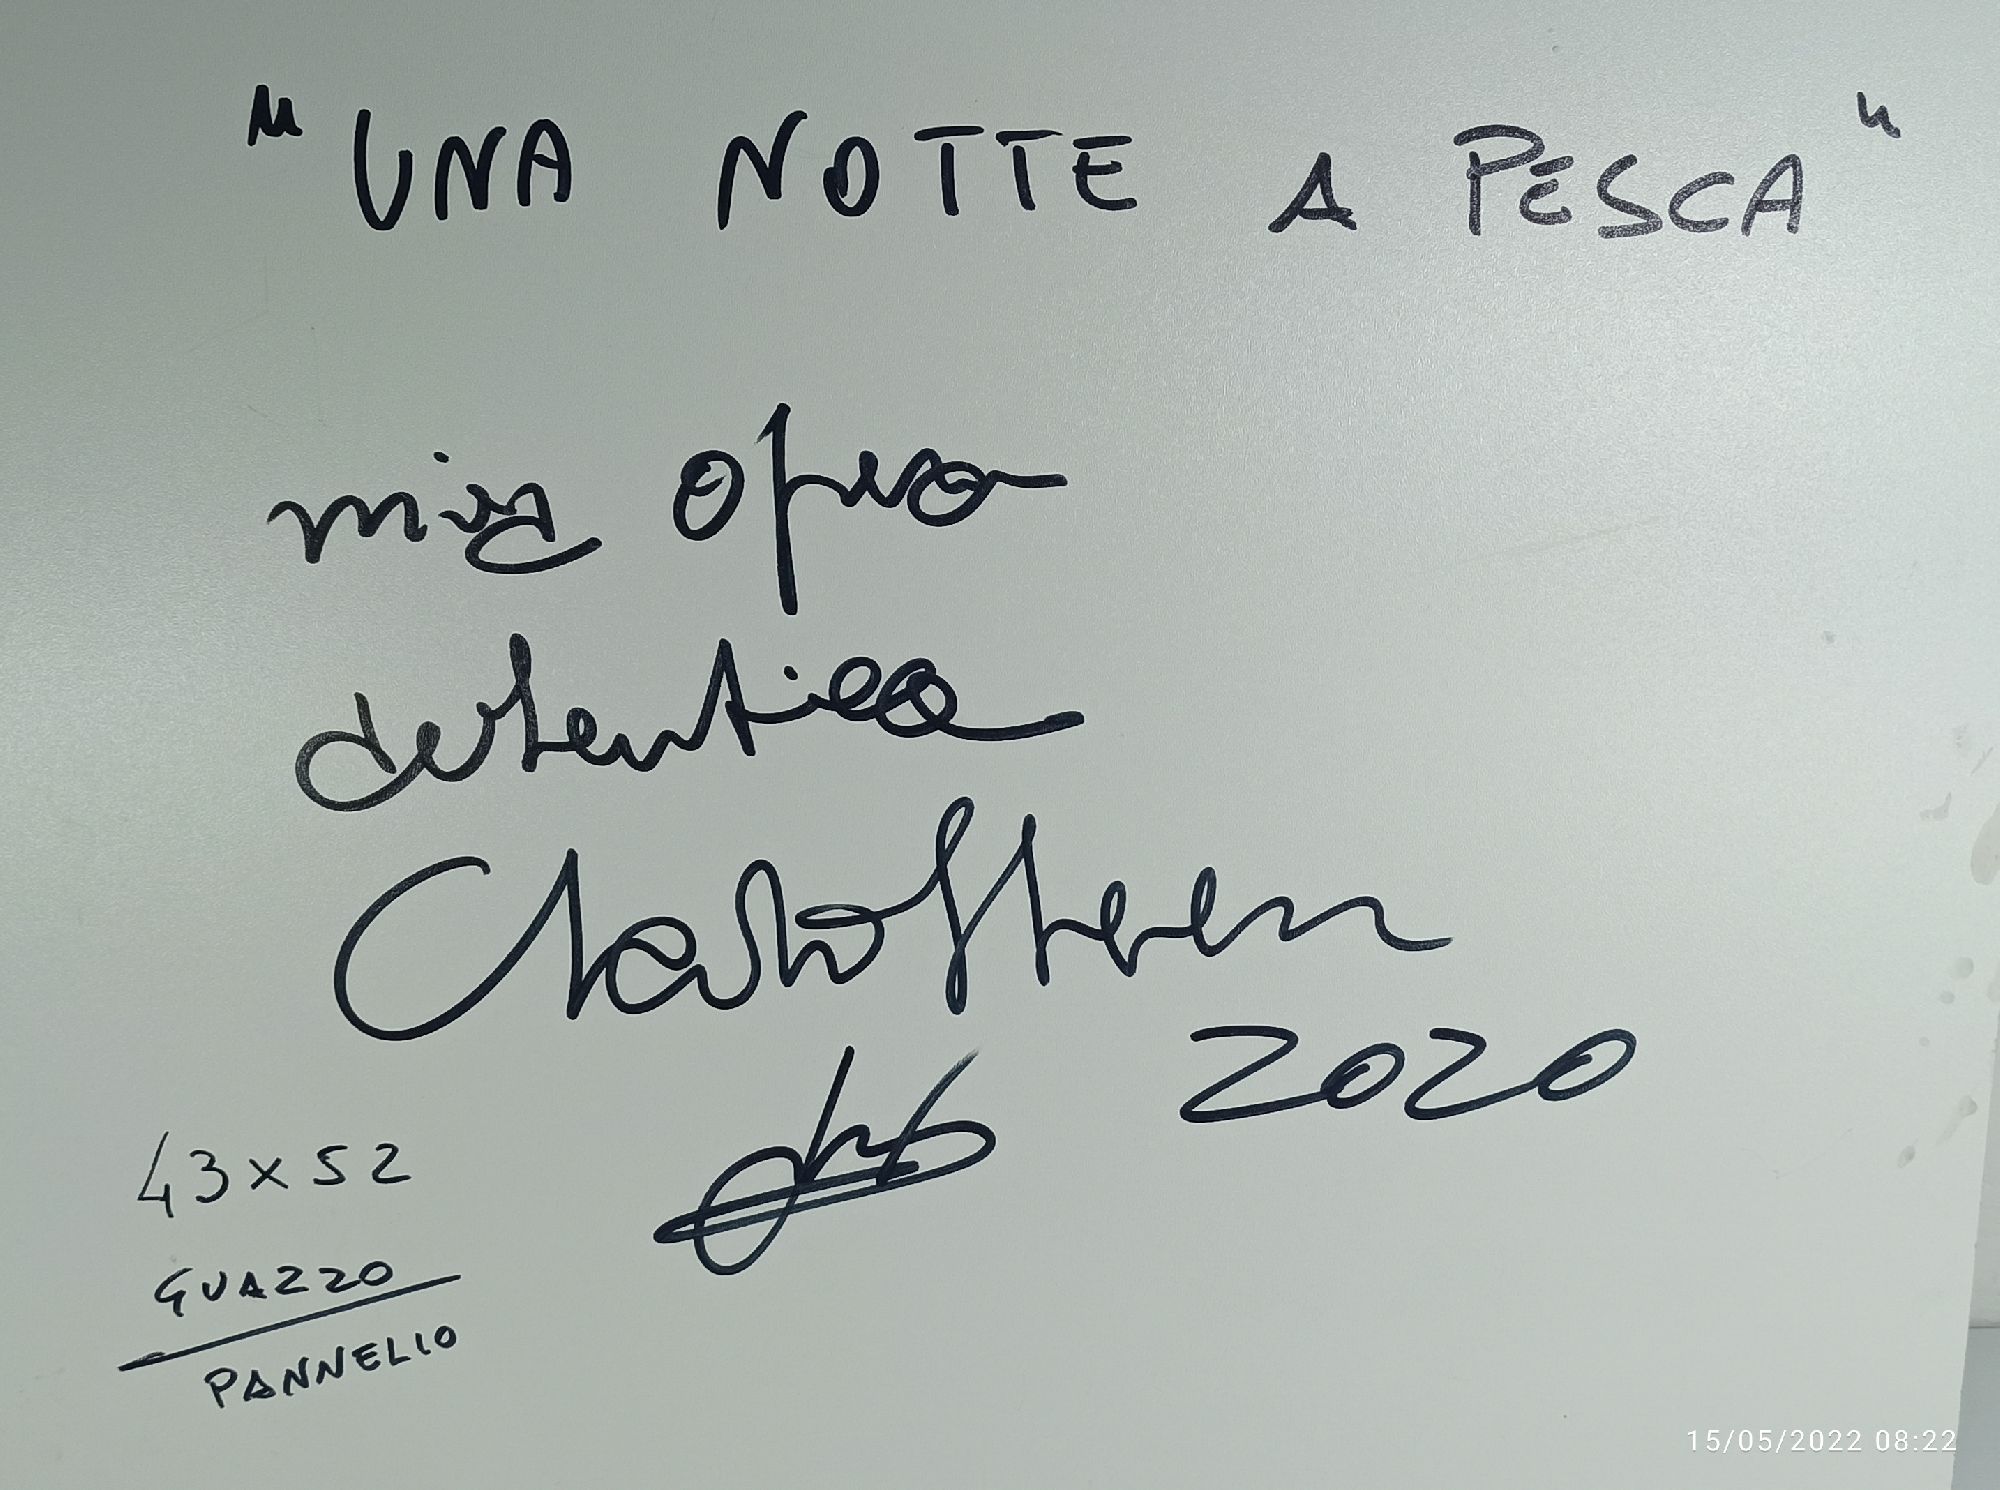 "UNA NOTTE A PESCA"
mia opera
autentica
2020
43x52
GUAZZO
PANNELLO
15/05/2022 08:22